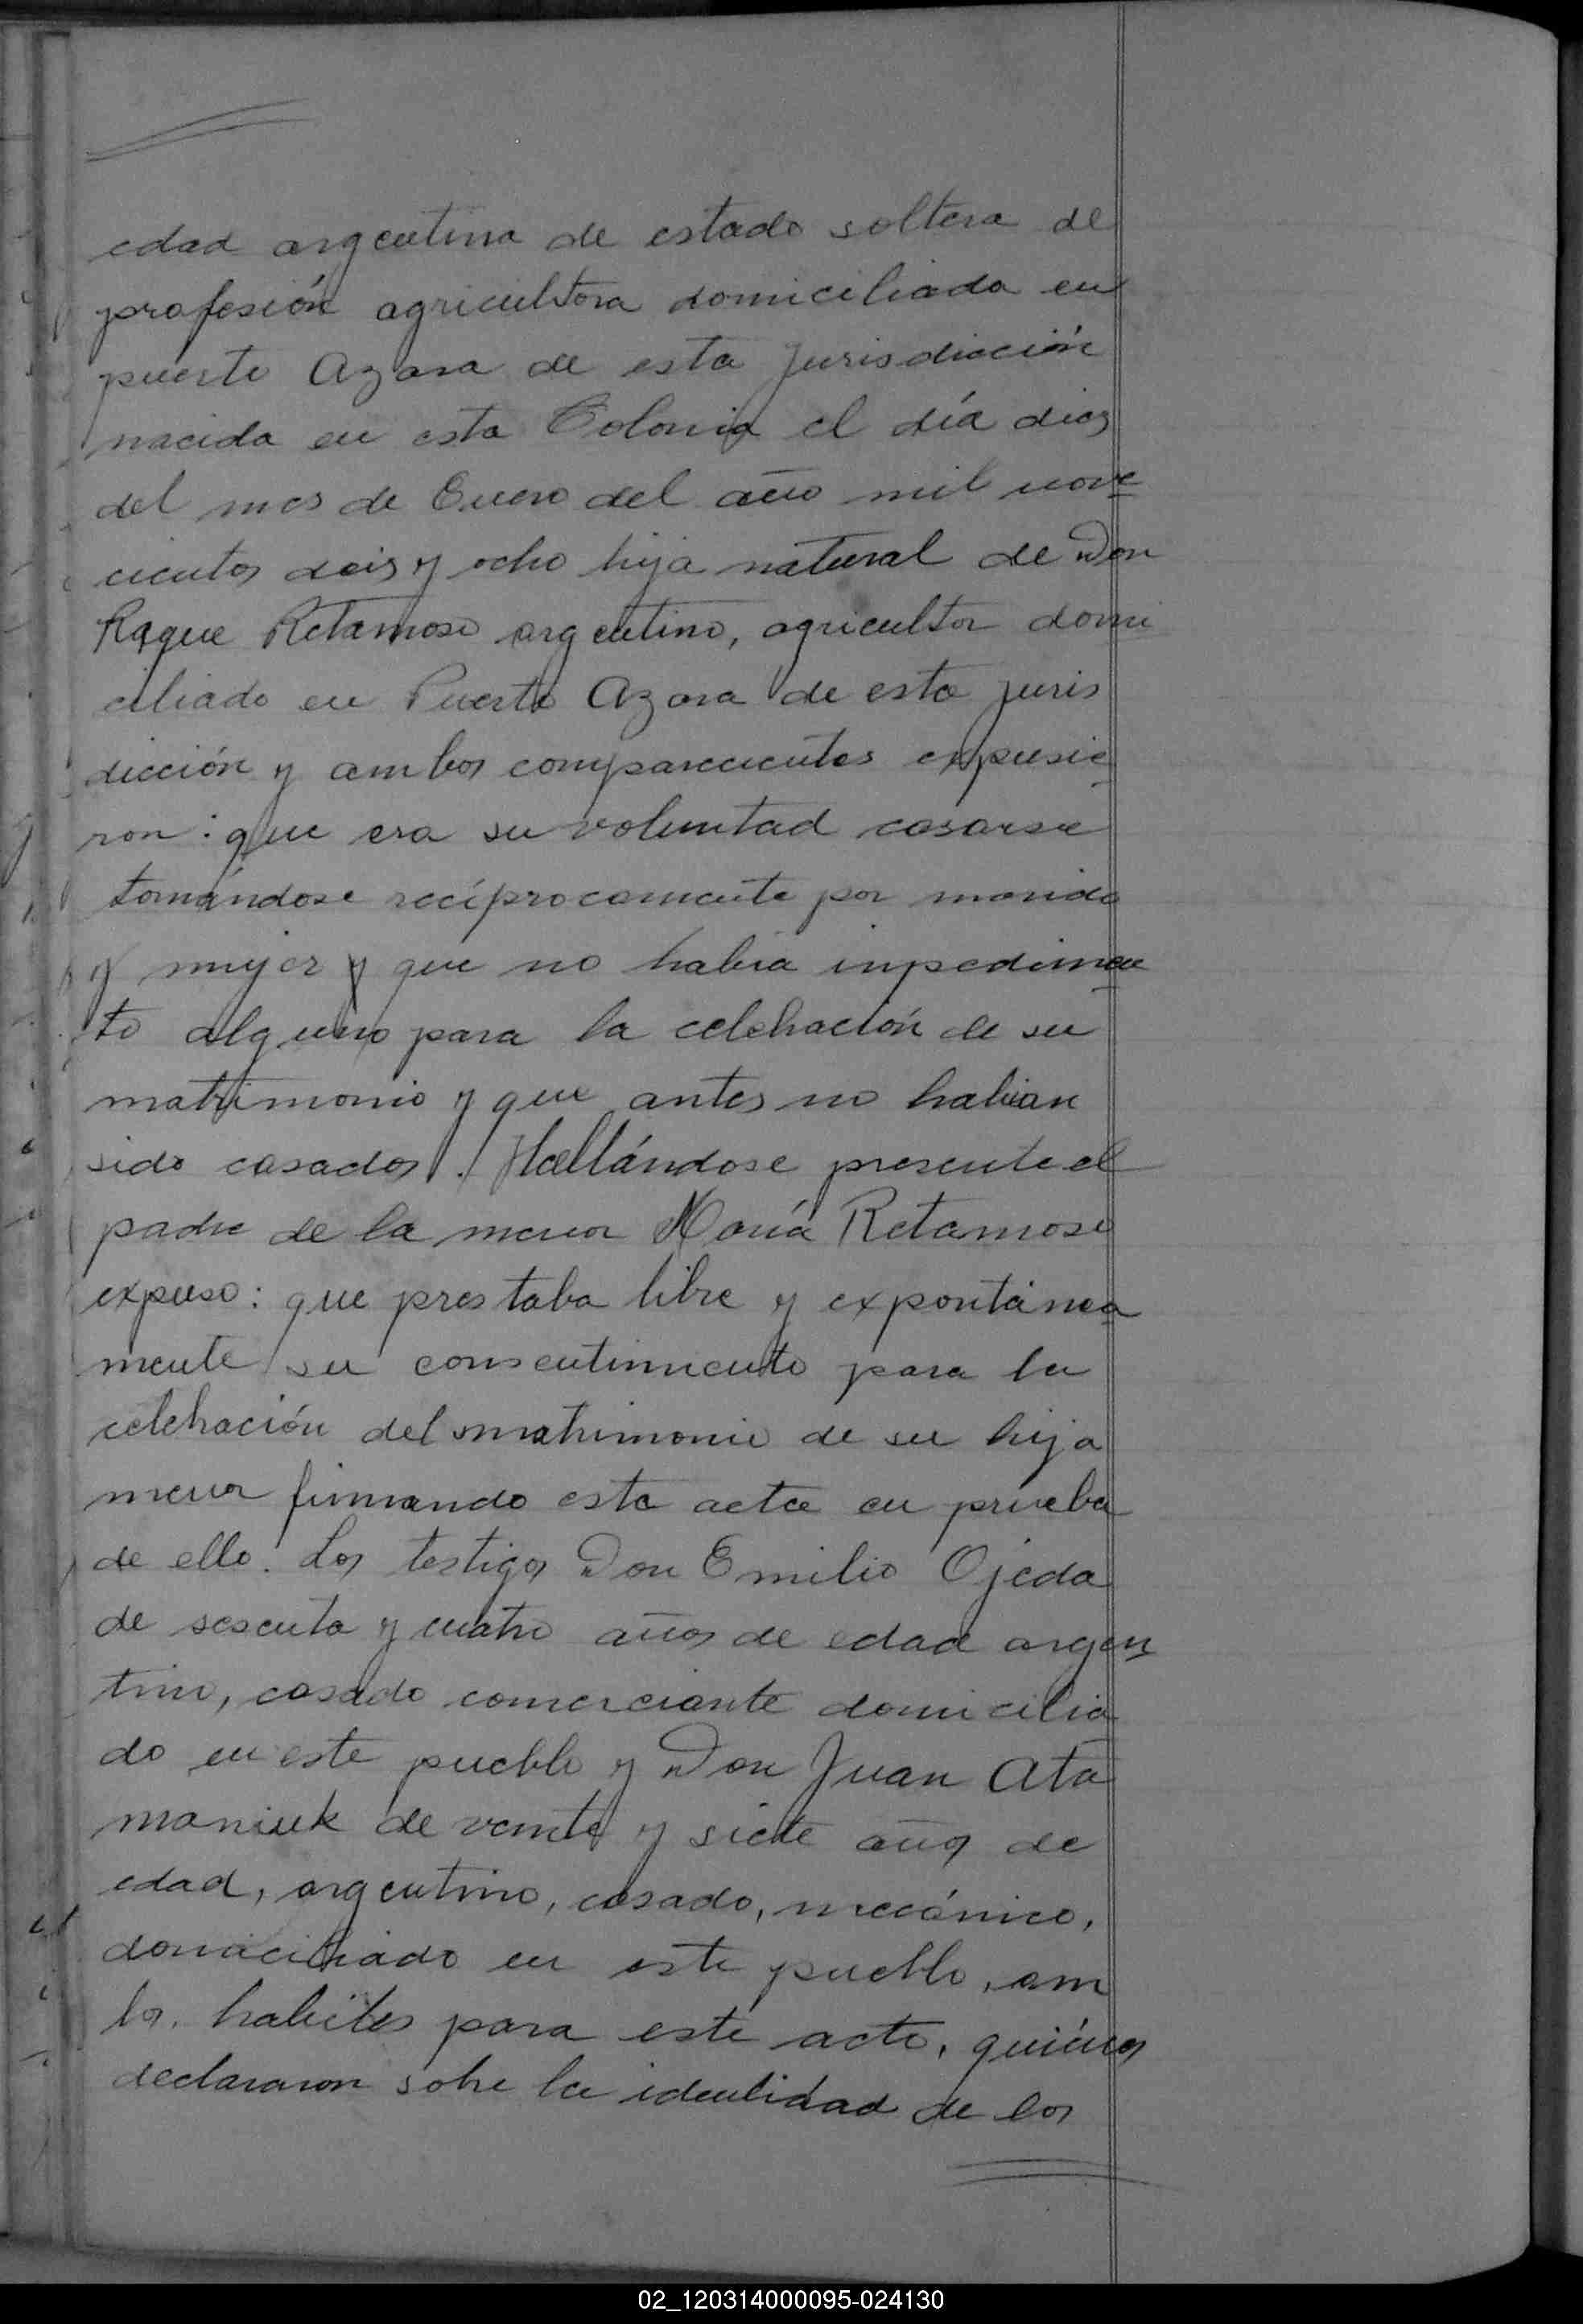 edad argentina de estado soltera de
profesión agricultora domiciliada en
puerto Azara de esta Jurisdicción
nacida en esta Colonia el día diez
del mes de Enero del año mil nove
cientos deis y ocho hija natural de Don
Roque Retamoso argentino, agricultor domi
ciliado en Puerto Azara de esta juris
dicción y ambos comparecientes expusie
ron: que era su voluntad casarse
tomándose recíprocamente por marido
y mujer y que no habia inpedimen
to alguno para la celebración de su
matrimonio y que antes no habian
sido casados. Hallándose presente el
padre de la menor María Retamoso
expuso: que prestaba libre y expontánea
mente su consentimiento para la
celebración del matrimonio de su hija
menor firmando esta acta en prueba
de ello. Los testigos Don Emilio Ojeda
de sesenta y cuatro años de edad argen
tino, casado comerciante domicilia
do en este pueblo y Don Juan Ata
maniuk de veinte y siete años de
edad, argentino, casado, mecánico,
domiciliado en este pueblo, am
bos. habiles para este acto, quiénes
declararon sobre la identidad de los
02_120314000095-024130